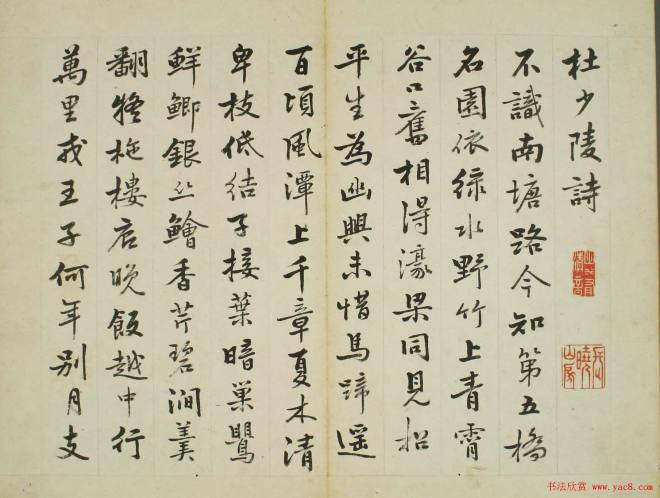 杜少陵詩
不識南塘路今知第五橋
名園依綠水野竹上青霄
谷口舊相得濠梁同見招
平生為幽興未惜馬蹄遥
百頃風潭上千章夏木清
卑枝低結子接葉暗巢鶯
鮮鯽銀丝鱠香芹碧澗羹
翻疑柂樓底晚飯越中行
萬里戎王子何年別月支
书法欣赏 www.yac8.com